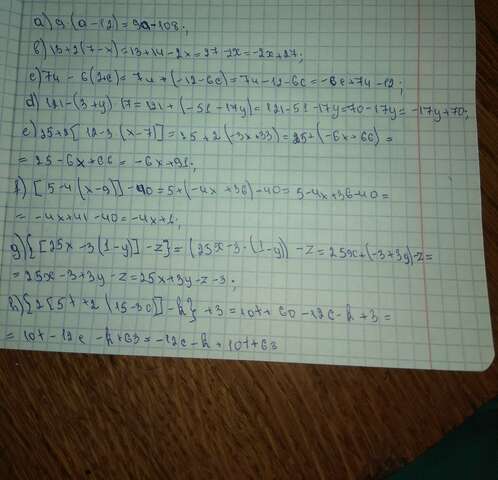 a) 9·(a-12)=9a-108;
b) 13+2(7-x)=13+14-2x=27-2x=-2x+27;
c) 74-6(2+c)=74+(-12-6c)=74-12-6c=-6c+74-12;
d) 121-(3+y)·17=121+(-51-17y)=121-51-17y=70-17y=-17y+70;
e) 25+2[12-3(x-7)]=25+2(-3x+33)=25+(-6x+66)=
=25-6x+66=-6x+91;
f) [5-4(x-9)]-40=5+(-4x+36)-40=5-4x+36-40=
=-4x+41-40=-4x+1;
g) {[25x-3(1-y)]-z}=(25x-3·(1-y))-z=25x+(-3+3y)-z=
=25x-3+3y-z=25x+3y-z-3;
h) {2[5t+2(15-3c)]-k}+3=10t+60-12c-k+3=
=10t-12c-k+63=-12c-k+10t+63